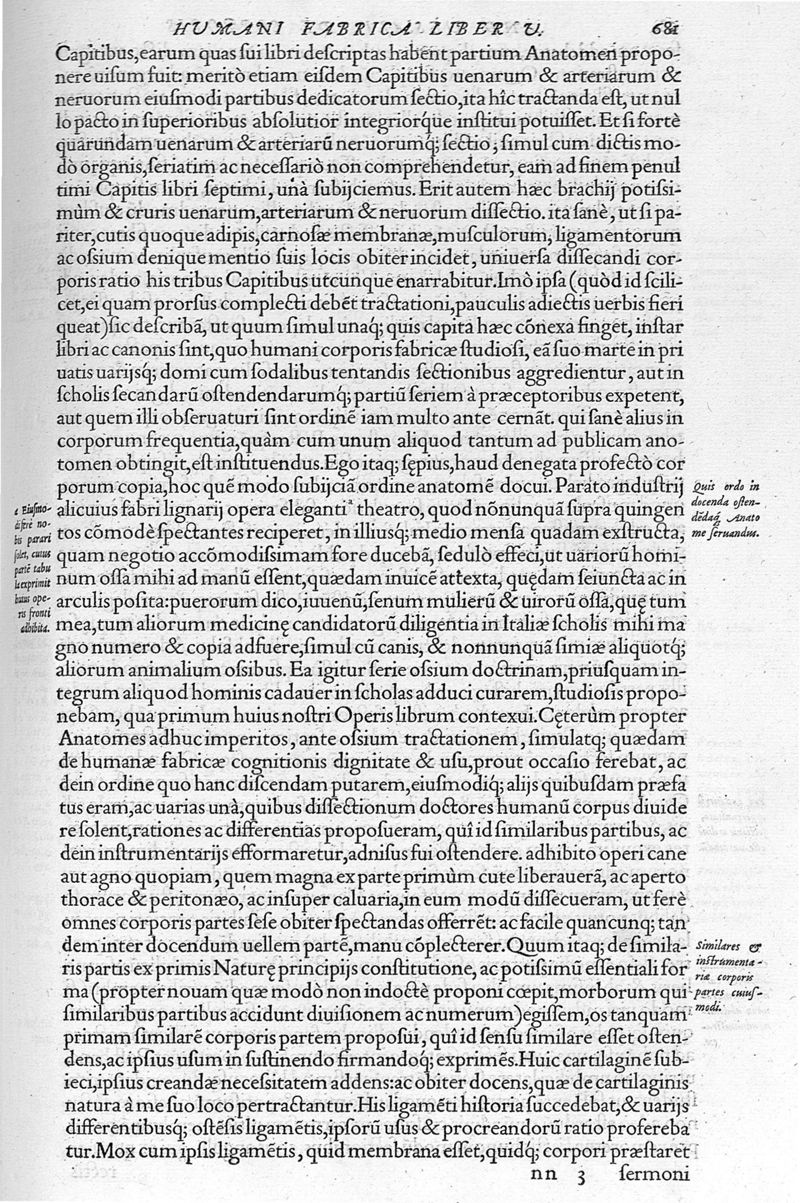 HVMANI FABRICA LIBER V. 681
Capitibus,earum quas sui libri descriptas habent partium Anatomen propo-
nere uisum fuit: meritò etiam eisdem Capitibus uenarum & arteriarum &
neruorum eiusmodi partibus dedicatorum sectio,ita hîc tractanda est, ut nul
lo pacto in superioribus absolutior integriorq́ue institui potuisset. Et si fortè
quarundam uenarum & arteriarū neruorumq́; sectio, simul cum dictis mo-
dò organis,seriatim ac necessariò non comprehendetur, eam ad finem penul
timi Capitis libri septimi, unà subijciemus. Erit autem hæc brachij potissi-
mùm & cruris uenarum,arteriarum & neruorum dissectio. ita sanè, ut si pa-
riter,cutis quoque adipis,carnosæ membranæ,musculorum, ligamentorum
ac ossium denique mentio suis locis obiter incidet, uniuersa dissecandi cor-
poris ratio his tribus Capitibus utcunque enarrabitur.Imò ipsa (quòd id scili-
cet,ei quam prorsus complecti debēt tractationi,pauculis adiectis uerbis fieri
queat)sic describā, ut quum simul unaq́; quis capita hæc cōnexa finget, instar
libri ac canonis sint,quo humani corporis fabricæ studiosi, eā suo marte in pri
uatis uarijsq́; domi cum sodalibus tentandis sectionibus aggredientur, aut in
scholis secandarū ostendendarumq́; partiū seriem à præceptoribus expetent,
aut quem illi obseruaturi sint ordinē iam multo ante cernāt. qui sanè alius in
corporum frequentia,quàm cum unum aliquod tantum ad publicam ano-
tomen obtingit,est instituendus.Ego itaq; sępius,haud denegata profectò cor
porum copia,hoc quē modo subijciā ordine anatomē docui. Parato industrij
alicuius fabri lignarij opera eleganti ᵃ theatro, quod nōnunquā supra quingen
tos cōmodè spectantes reciperet, in illiusq́; medio mensa quadam exstructa,
quam negotio accōmodissimam fore ducebā, sedulò effeci,ut uariorū homi-
num ossa mihi ad manū essent,quædam inuicē attexta, quędam seiuncta ac in
arculis posita:puerorum dico,iuuenū,senum mulierū & uirorū ossa,quę tum
mea,tum aliorum medicinę candidatorū diligentia in Italiæ scholis mihi ma
gno numero & copia adfuere,simul cū canis, & nonnunquā simiæ aliquotq́;
aliorum animalium ossibus. Ea igitur serie ossium doctrinam,priusquam in-
tegrum aliquod hominis cadauer in scholas adduci curarem,studiosis propo-
nebam, qua primum huius nostri Operis librum contexui.Cęterùm propter
Anatomes adhuc imperitos, ante ossium tractationem, simulatq; quædam
de humanæ fabricæ cognitionis dignitate & usu,prout occasio ferebat, ac
dein ordine quo hanc discendam putarem,eiusmodiq́; alijs quibusdam præfa
tus eram,ac uarias unà,quibus dissectionum doctores humanū corpus diuide
re solent,rationes ac differentias proposueram, quî id similaribus partibus, ac
dein instrumentarijs efformaretur,adnisus fui ostendere. adhibito operi cane
aut agno quopiam, quem magna ex parte primùm cute liberauerā, ac aperto
thorace & peritonæo, ac insuper caluaria,in eum modū dissecueram, ut ferè
omnes corporis partes sese obiter spectandas offerrēt: ac facile quancunq; tan
dem inter docendum uellem partē,manu cōplecterer.Quum itaq; de simila-
ris partis ex primis Naturę principijs constitutione, ac potissimū essentiali for
ma (propter nouam quæ modò non indoctè proponi cœpit,morborum qui
similaribus partibus accidunt diuisionem ac numerum)egissem,os tanquam
primam similarē corporis partem proposui, quî id sensu similare esset osten-
dens,ac ipsius usum in sustinendo firmandoq́; exprimēs.Huic cartilaginē sub-
ieci,ipsius creandæ necessitatem addens:ac obiter docens,quæ de cartilaginis
natura à me suo loco pertractantur.His ligamēti historia succedebat,& uarijs
differentibusq́; ostēsis ligamētis,ipsorū usus & procreandorū ratio profereba
tur.Mox cum ipsis ligamētis, quid membrana esset,quidq́; corpori præstaret
nn 3 sermoni
a Eiusmo-
di ferè no-
bis parari
solet, cuius
partē tabu
la exprimit
huius ope-
ris fronti
adhibita.
Quis ordo in
docenda osten-
dēdaq́; Anato
me seruandus.
Similares &
instrumenta-
riæ corporis
partes cuius-
modi.